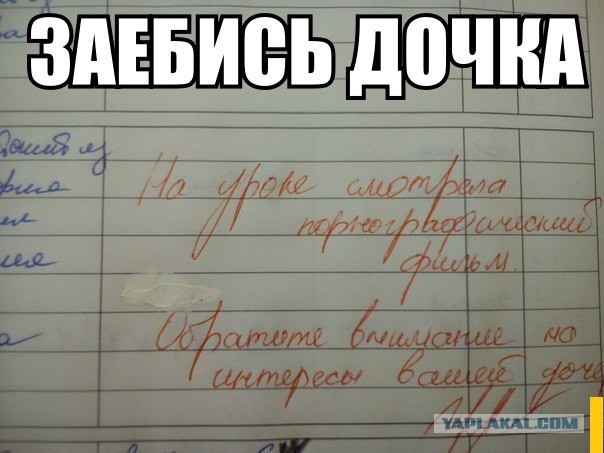 ЗАЕБИСЬ ДОЧКА
На уроке смотрела
порнографический
фильм.
Обратите внимание на
интересы вашей
YAPLAKAL.COM